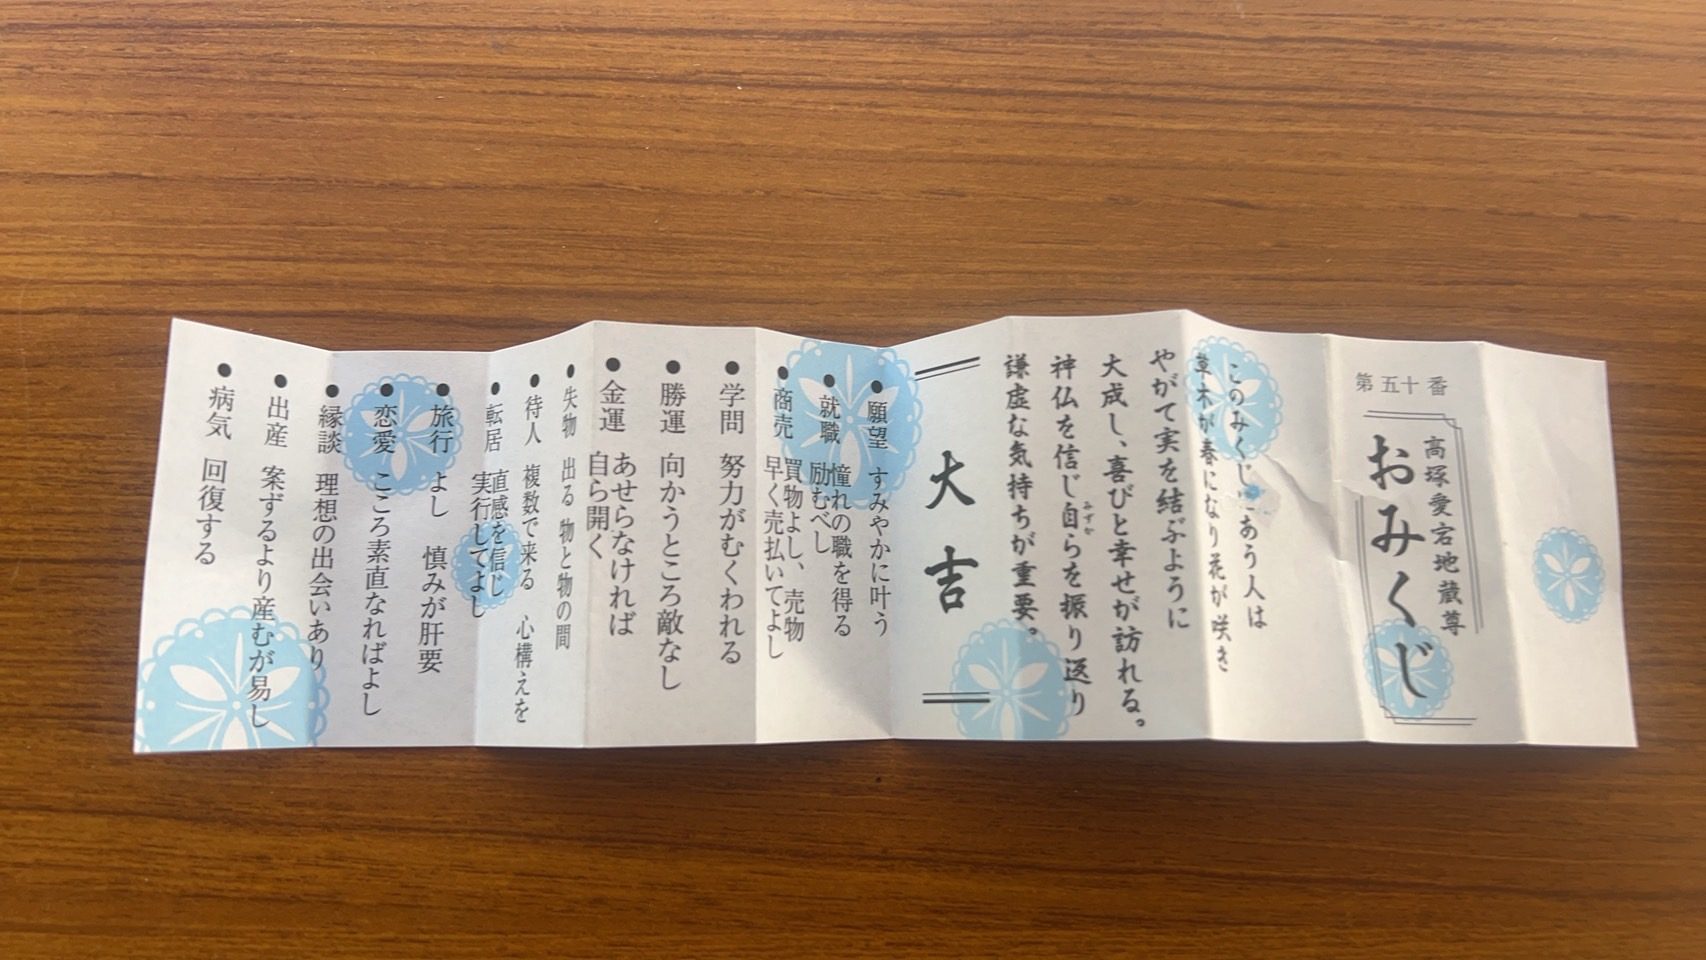 第五十番
高塚愛宕地蔵尊
おみくじ
このみくじにあう人は
草木が春になり花が咲き
やがて実を結ぶように
大成し、喜びと幸せが訪れる。
神仏を信じ自らを振り返り
みずか
謙虚な気持ちが重要。
大吉
●願望 すみやかに叶う
●就職 憧れの職を得る
励むべし
●商売 買物よし、売物
早く売払いてよし
●学問 努力がむくわれる
●勝運 向かうところ敵なし
●金運 あせらなければ
自ら開く
●失物 出る 物と物の間
●待人 複数で来る 心構えを
●転居 直感を信じ
実行してよし
●旅行 よし 慎みが肝要
●恋愛 こころ素直なればよし
●縁談 理想の出会いあり
●出産 案ずるより産むが易し
●病気 回復する